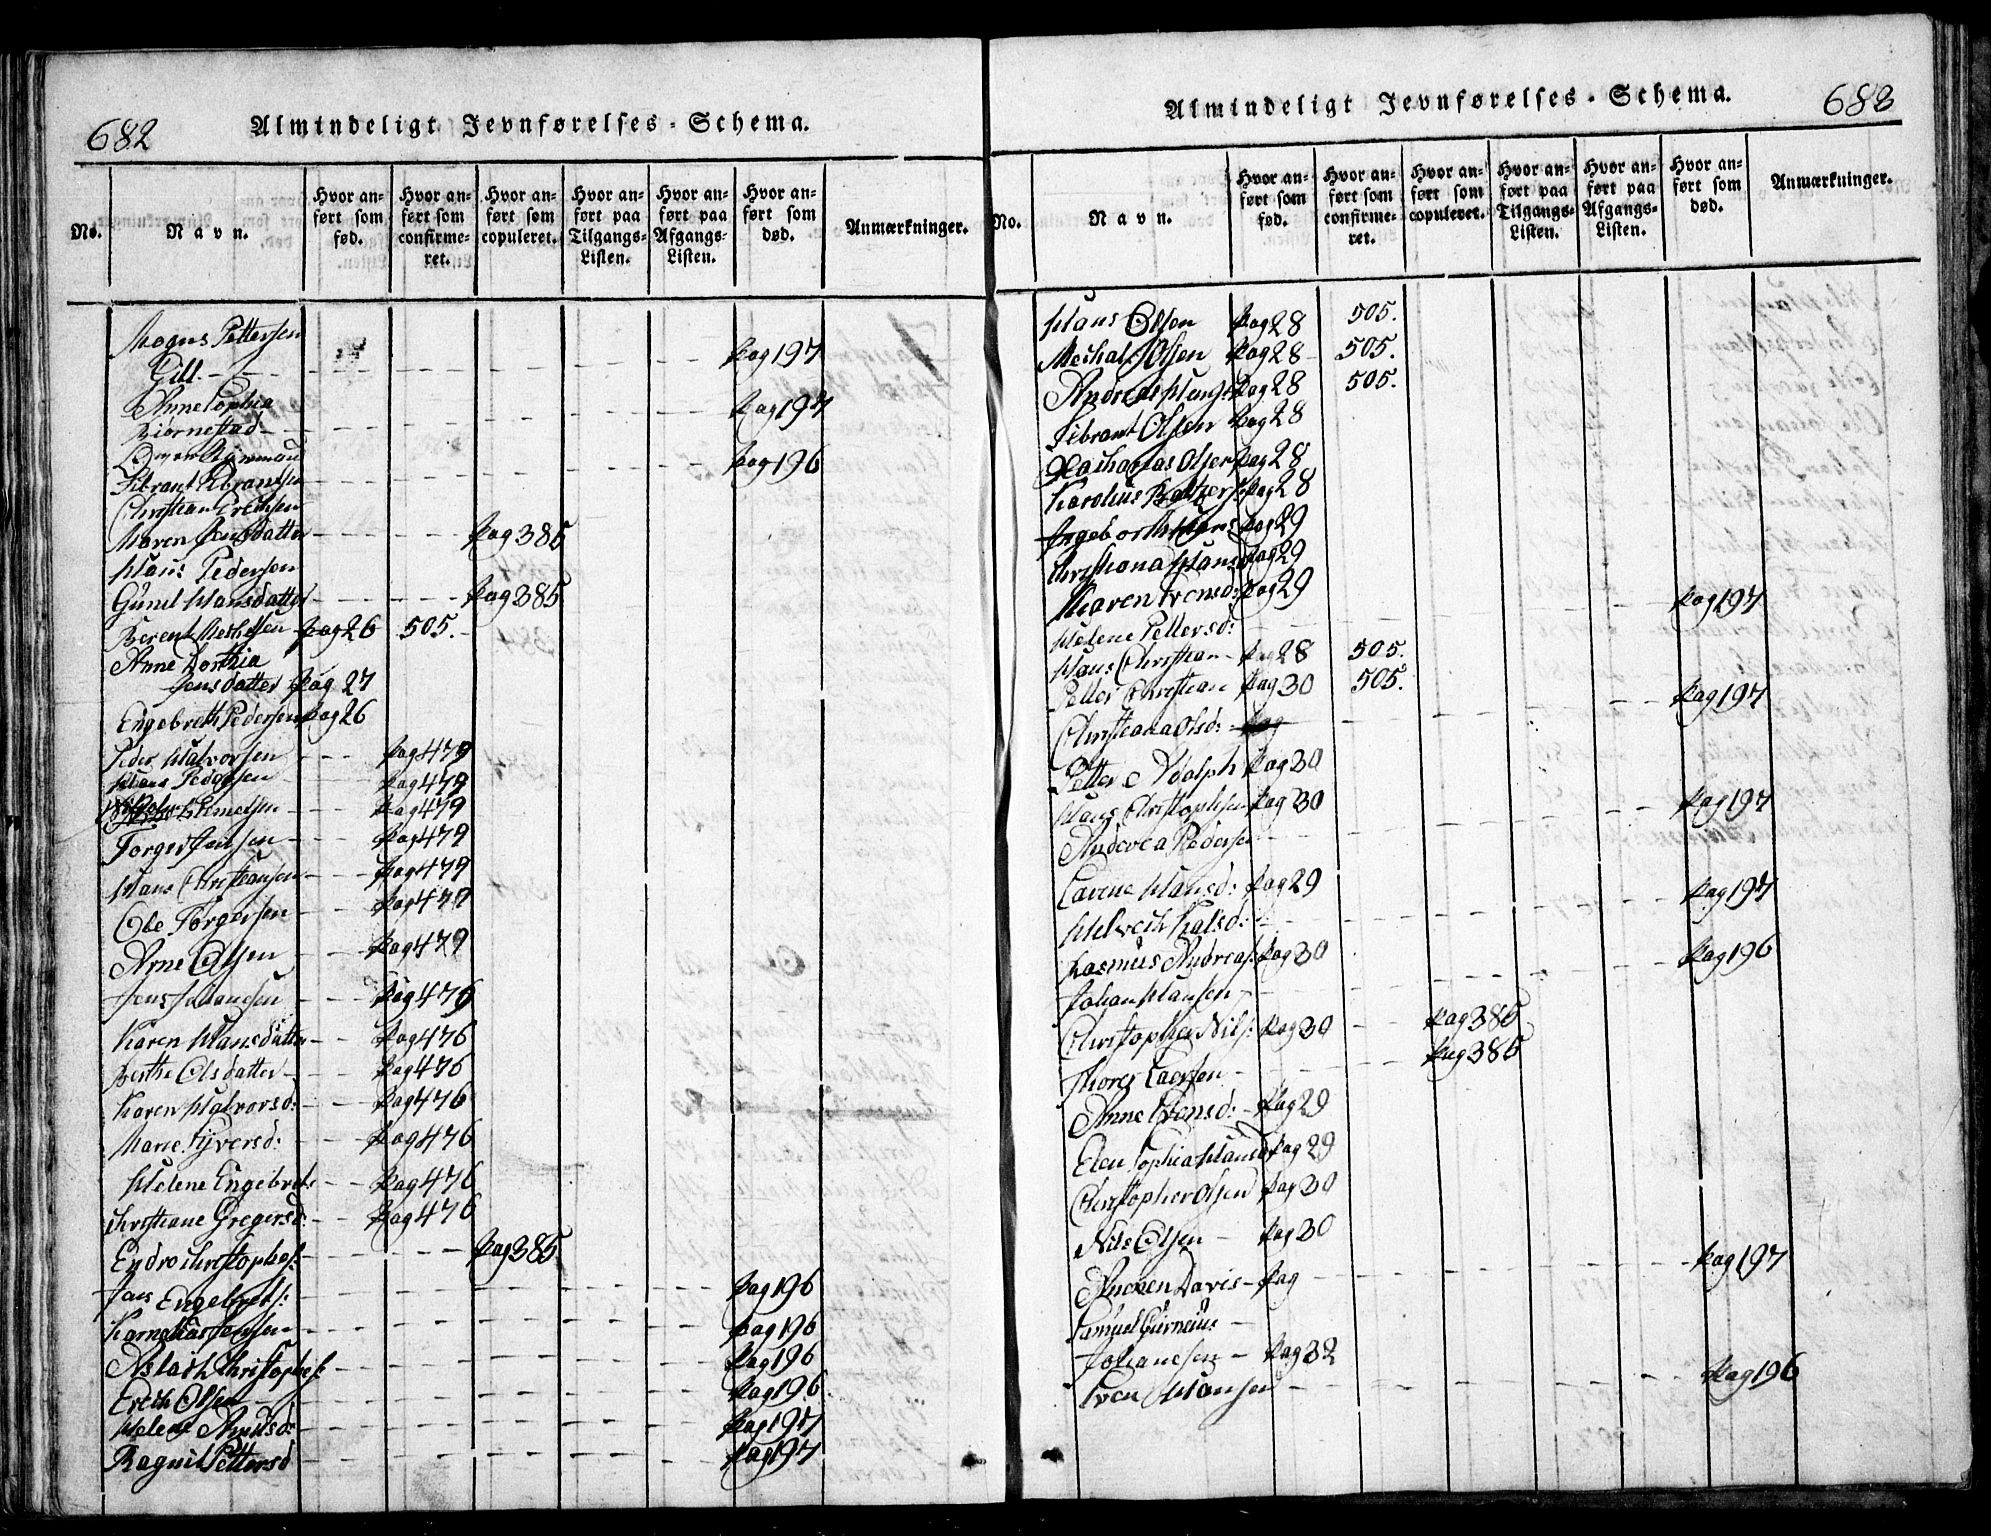 682
Almindeligt Jevnførelses-Schema.
No. Navn. Hvor anført som fød. Hvor anført som confirmeret. Hvor anført som copuleret. Hvor anført paa Tilgangs-Listen. Hvor anført paa Afgangs-Listen. Hvor anført som død. Anmærkninger.
Magnus Pettersen
Gill. pag 197
Anne Sophia
Biørnestad pag 197
pag 196
Sibrant Sibrantsen
Christian Erichsen
Maren Jensdatter pag 385
Hans Pedersen
Gunil Hansdatter pag 385
Berent pag 26 505.
Anne Dorthia
Jensdatter pag 27
Engebreth Pedersen pag 26
Peder Halvorsen pag 479
Hans Pedersen pag 479
pag 479
Torger Jensen pag 479
Hans Christiansen pag 479
Ole Torgersen pag 479
Arne Olsen pag 479
Jens Johansen pag 476
Karen Hansdatter pag 476
Berthe Olsdatter pag 476
Karen Halvorsd: pag 476
Marie Syversd: pag 476
Helene Engebret: pag 476
Christiane Gregersd: pag 476
Endro Christophes: pag 385
Jens Engebrets: pag 196
Karnelius Jensen pag 196
Aslach Christophes: pag 196
Erich Olsen pag 196
Helene Knudsd: pag 197
Ragnil Pettersd pag 197
683
Almindeligt Jevnførelses-Schema.
No. Navn. Hvor anført som fød. Hvor anført som confirmeret. Hvor anført som copuleret. Hvor anført paa Tilgangs-Listen. Hvor anført paa Afgangs-Listen. Hvor anført som død. Anmærkninger.
Hans Olsen pag 28 505.
Michal Olsen pag 28 505.
Andreas pag 28 505.
Sibrant Olsen pag 28
Zacharias Olsen pag 28
Karolius pag 28
Ingeborth Hans pag 29
Christiana Hansd pag 29
Maren Evensd: pag 29
Helene Pettersd: pag 197
Hans Christian pag 28 505.
Petter Christian pag 30 505.
Christiana Olsd: pag pag 197
Petter Adolph pag 30
Hans Christophersen pag 30
Andrea Pedersen pag 197
Lavine Hansd: pag 29
pag 197
Rasmus Andreas: pag 30
Johan Hansen pag 196
Christopher Nils: pag 30 pag 385
Thores Larssen pag 385
Anne Evensd: pag 29
Elen Sophia Hansd pag 29
Christopher Olsen pag 30
Nils Olsen pag 30
Davis pag pag 197
Samuel
Johannesen pag 32
Even Hansen pag 196